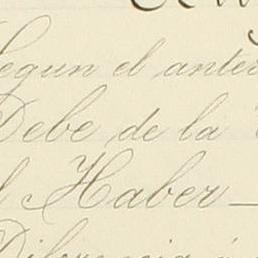 Segun el anter
Debe de la
el Haber —
Diferencia á